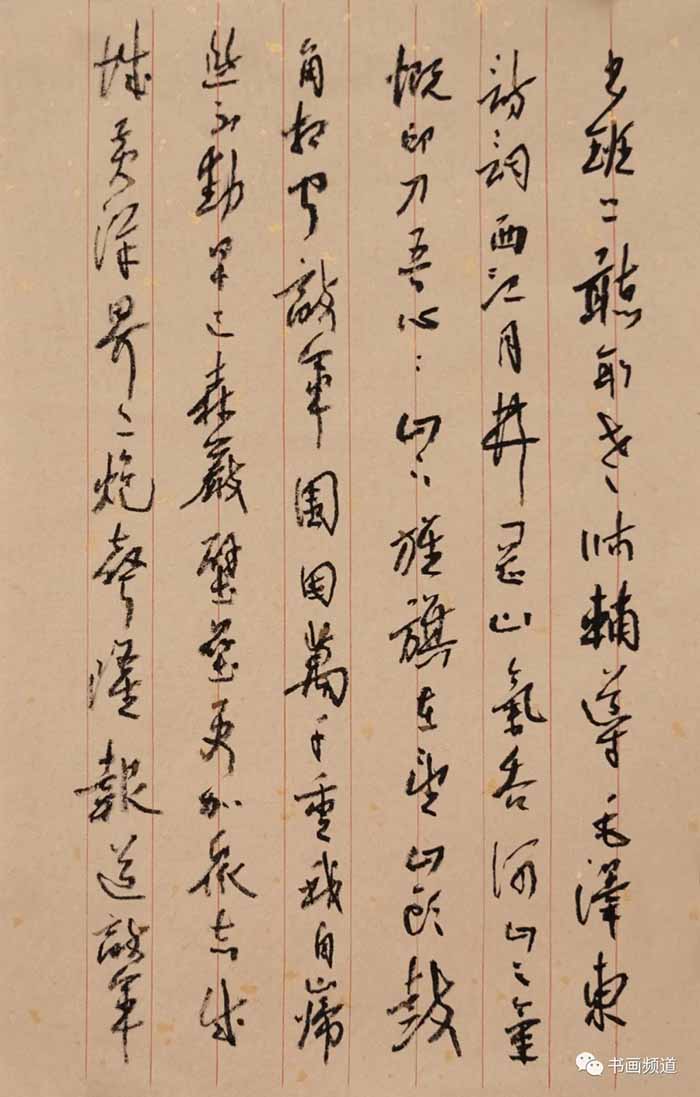 班二聽老师輔導毛澤東
詩詞西江月井岡山氣吞河山之氣
慨印刀吾心山下旌旗在望山頭鼓
角相聞敵軍圍困萬千重我自巋
然不動早已森嚴壁壘更加眾志成
城黃洋界上炮聲隆報道敵軍
书画频道